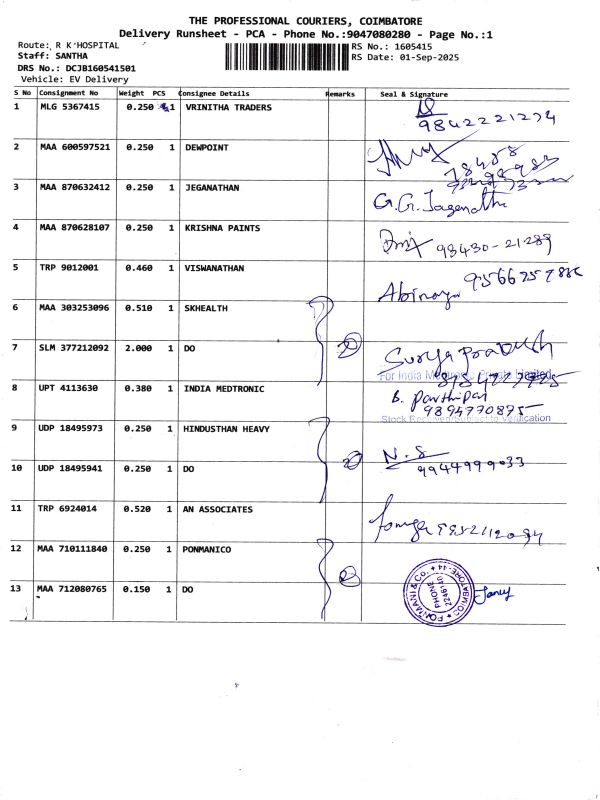 THE PROFESSIONAL COURIERS, COIMBATORE
Delivery Runsheet - PCA - Phone No.:9047080280 - Page No.:1
Route: R K HOSPITAL
RS No.: 1605415
Staff: SANTHA
RS Date: 01-Sep-2025
DRS No.: DCJB160541501
Vehicle: EV Delivery
S No Consignment No Weight PCS Consignee Details Remarks Seal & Signature
1 MLG 5367415 0.250 1 VRINITHA TRADERS
9842221274
2 MAA 600597521 0.250 1 DEWPOINT
3 MAA 870632412 0.250 1 JEGANATHAN
G.G. Jaganatha
4 MAA 870628107 0.250 1 KRISHNA PAINTS
98430-21289
5 TRP 9012001 0.460 1 VISWANATHAN
Abinaya
6 MAA 303253096 0.510 1 SKHEALTH
2
7 SLM 377212092 2.000 1 DO
Surya Prakash
For India Medtronic Private Limited
8 UPT 4113630 0.380 1 INDIA MEDTRONIC
B. Parthipan
9894770875
Stock Received Subject to Verification
9 UDP 18495973 0.250 1 HINDUSTHAN HEAVY
2 N.S
9944999033
10 UDP 18495941 0.250 1 DO
11 TRP 6924014 0.520 1 AN ASSOCIATES
12 MAA 710111840 0.250 1 PONMANICO
2
13 MAA 712080765 0.150 1 DO
PONMANI & Co. COIMBATORE-44
PHONE
2246140